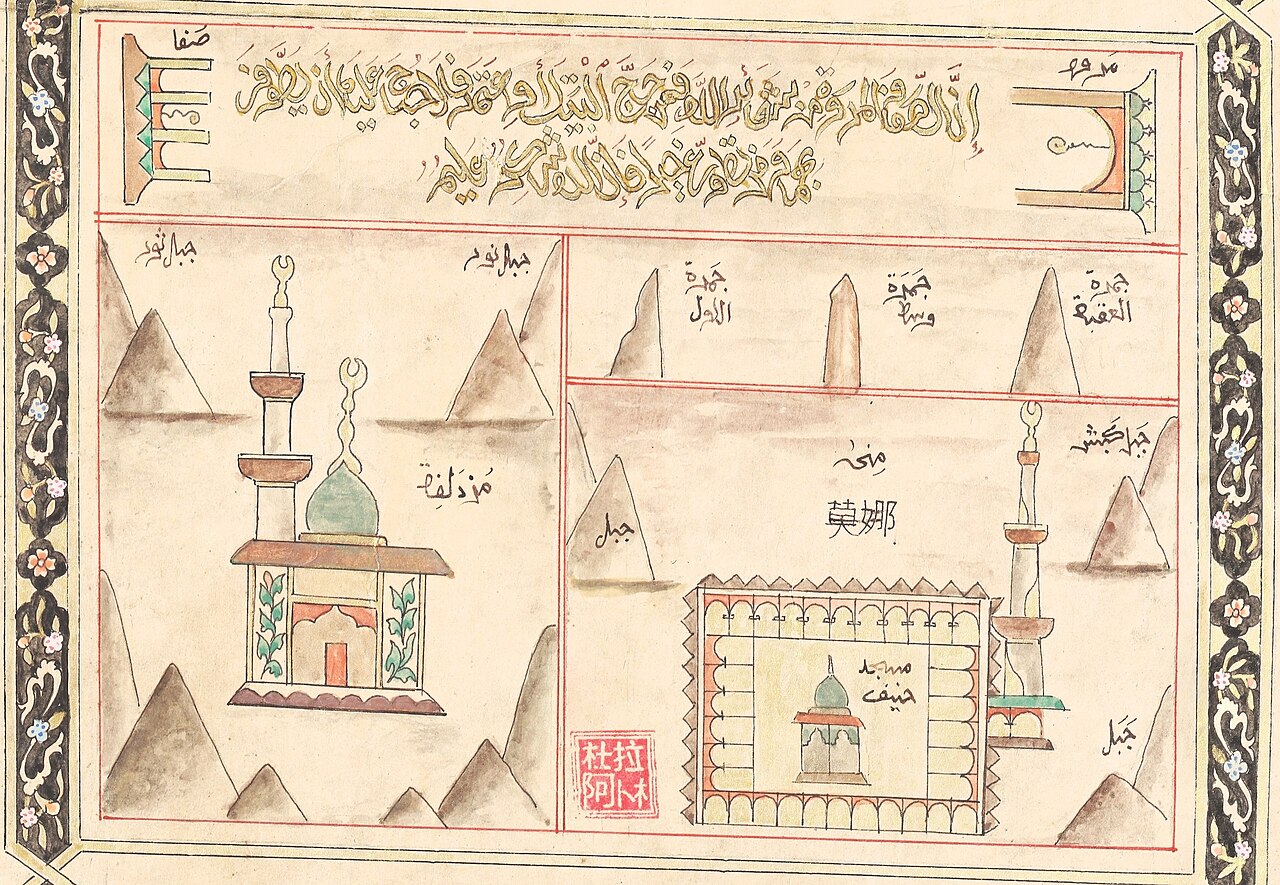 صفا
مروه
إِنَّ الصَّفَا وَالْمَرْوَةَ مِنْ شَعَائِرِ اللَّهِ فَمَنْ حَجَّ الْبَيْتَ أَوِ اعْتَمَرَ فَلَا جُنَاحَ عَلَيْهِ أَنْ يَطَّوَّفَ
بِهِمَا وَمَنْ تَطَوَّعَ خَيْرًا فَإِنَّ اللَّهَ شَاكِرٌ عَلِيمٌ
جبل نور
جبل ثور
جَمرة
العقبة
جَمَرَة
وسط
جَمرة
الاول
مُزدَلِفة
مِنى
莫娜
جبل كَبش
جبل
مسجد
حنيف
جَبَل
杜拉
阿卜林